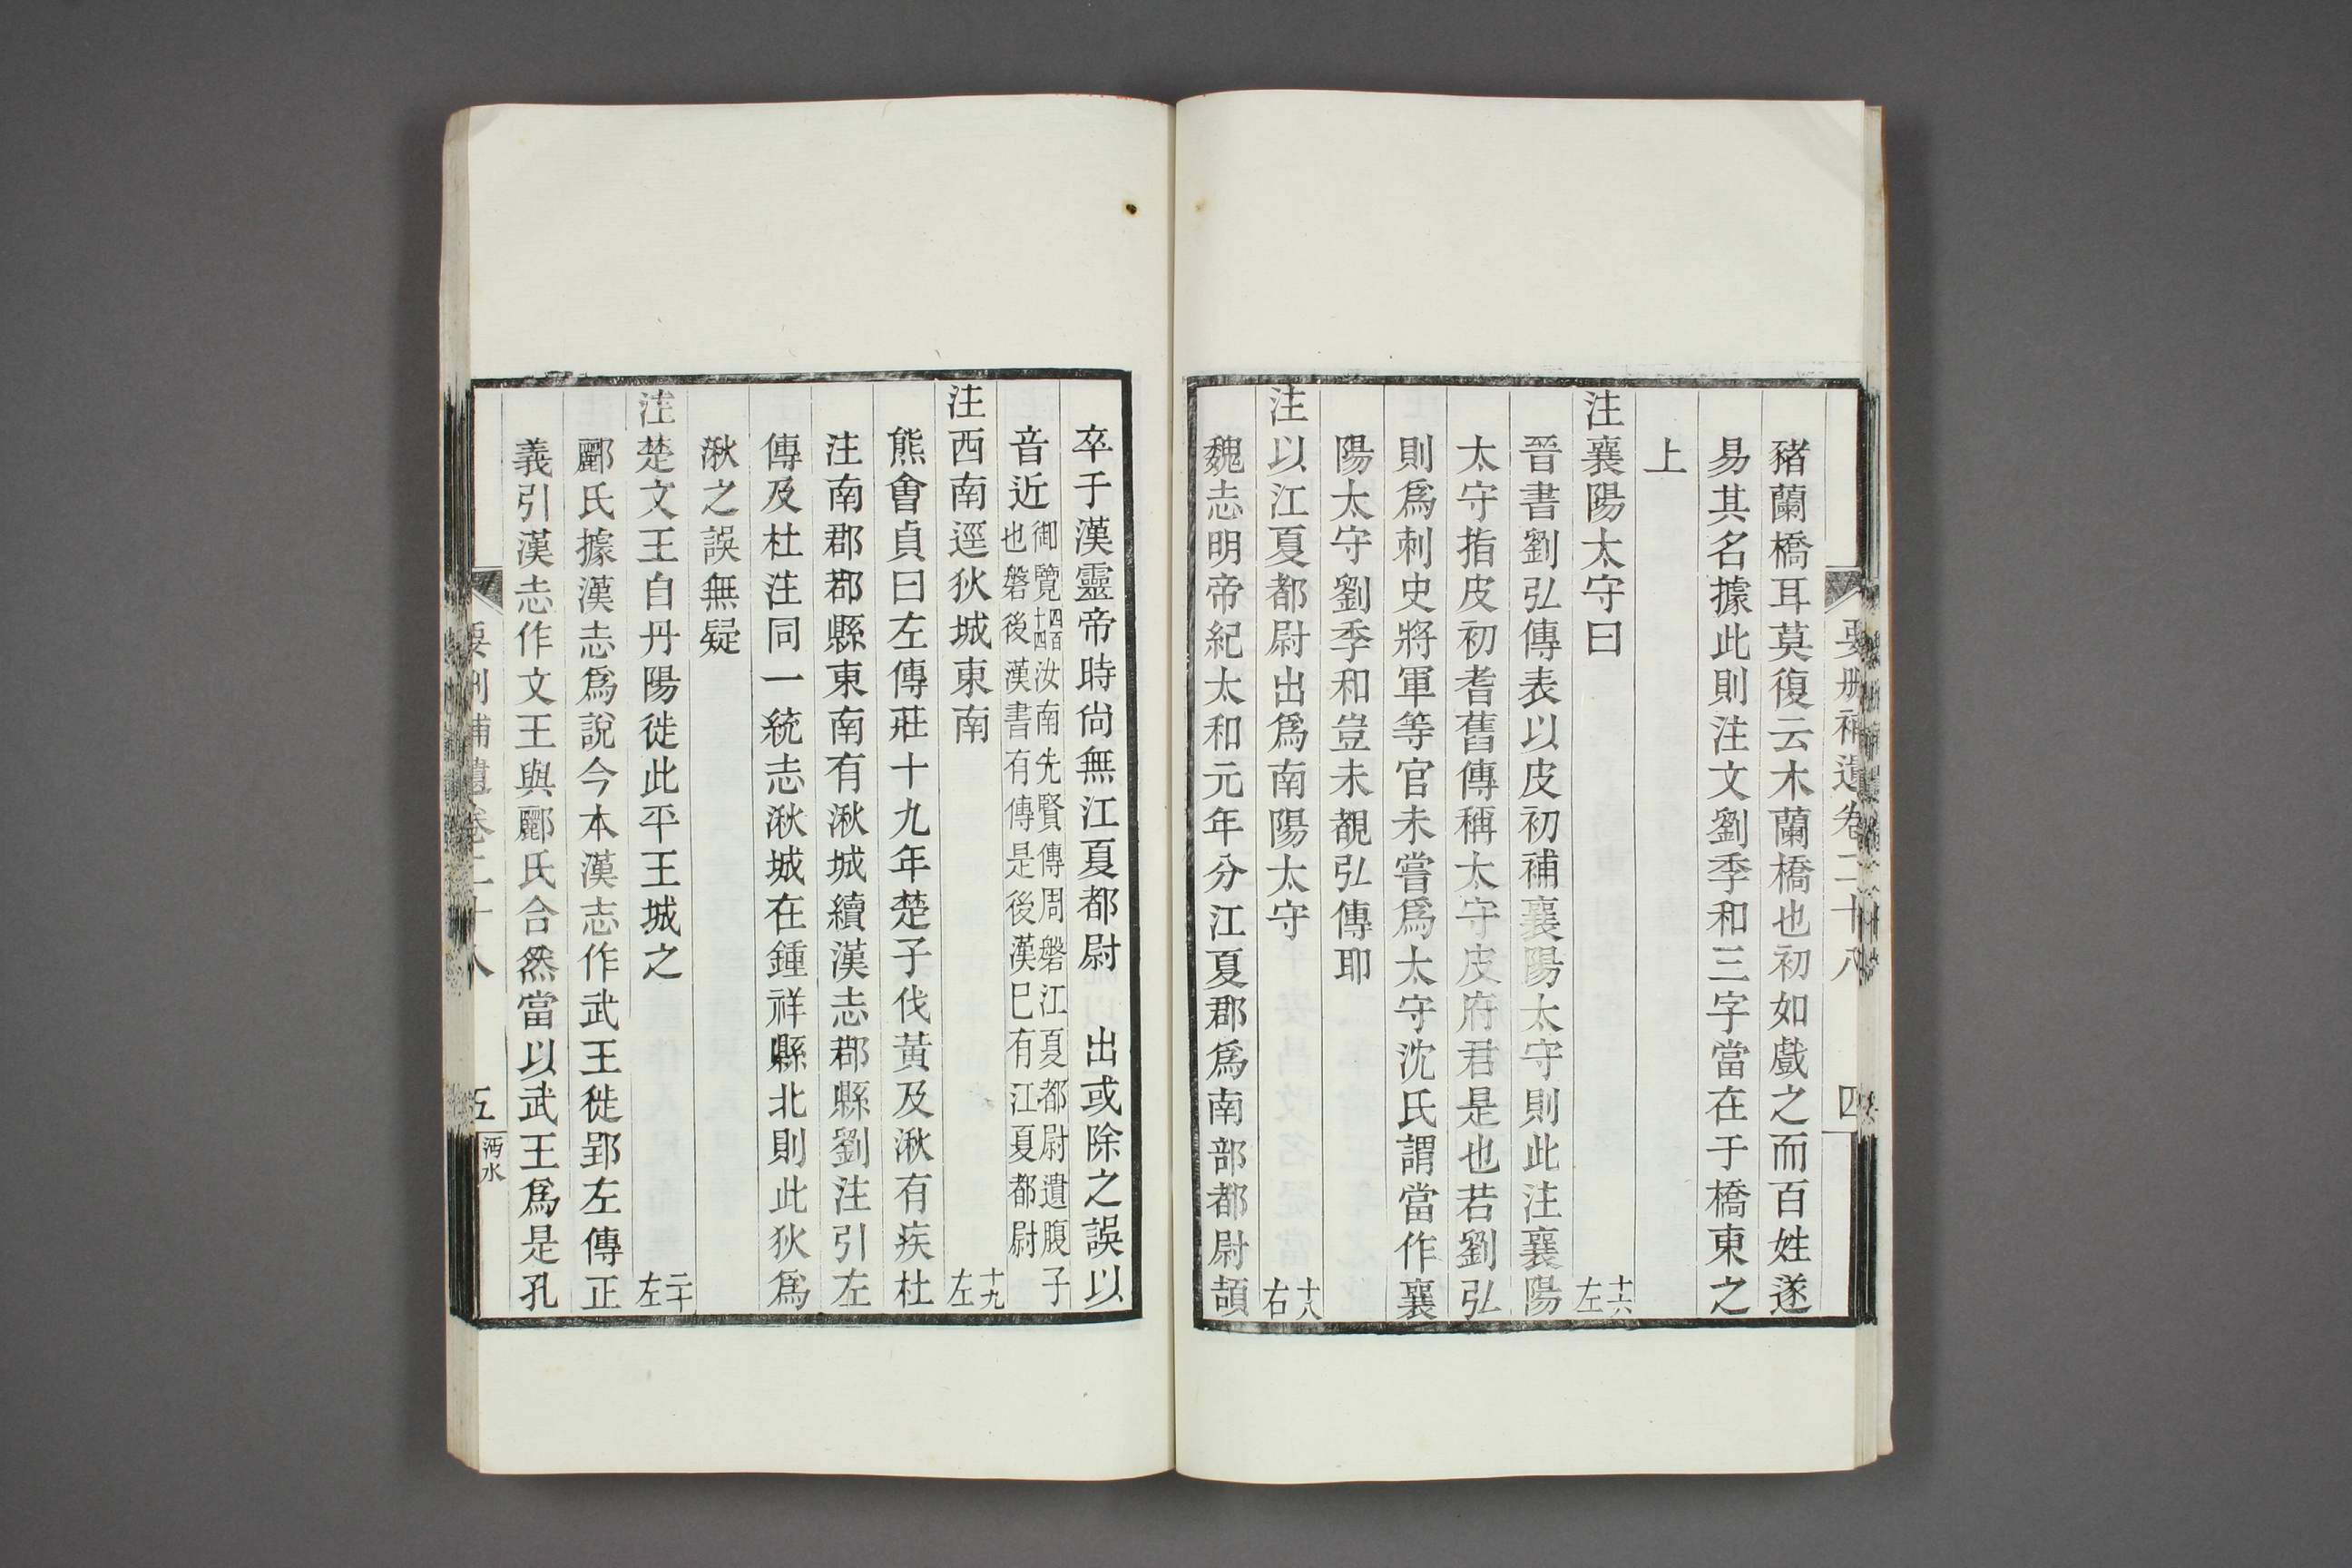 要刪補遺卷二十八 四
豬蘭橋耳莫復云木蘭橋也初如戲之而百姓遂
易其名據此則注文劉季和三字當在于橋東之
上
注襄陽太守曰 十六左
晉書劉弘傳表以皮初補襄陽太守則此注襄陽
太守指皮初耆舊傳稱太守皮府君是也若劉弘
則爲刺史將軍等官未嘗爲太守沈氏謂當作襄
陽太守劉季和豈未覩弘傳耶
注以江夏都尉出爲南陽太守 十八右
魏志明帝紀太和元年分江夏郡爲南部都尉頡
卒于漢靈帝時尙無江夏都尉 出或除之誤以
音近御覽四百十四汝南先賢傳周磐江夏都尉遺腹子
也磐後漢書有傳是後漢巳有江夏都尉
注西南逕狄城東南 十九左
熊會貞曰左傳莊十九年楚子伐黃及湫有疾杜
注南郡鄀縣東南有湫城續漢志鄀縣劉注引左
傳及杜注同一統志湫城在鍾祥縣北則此狄爲
湫之誤無疑
注楚文王自丹陽徙此平王城之 二十左
酈氏據漢志爲說今本漢志作武王徙郢左傳正
義引漢志作文王與酈氏合然當以武王爲是孔
要刪補遺卷二十八 五 沔水